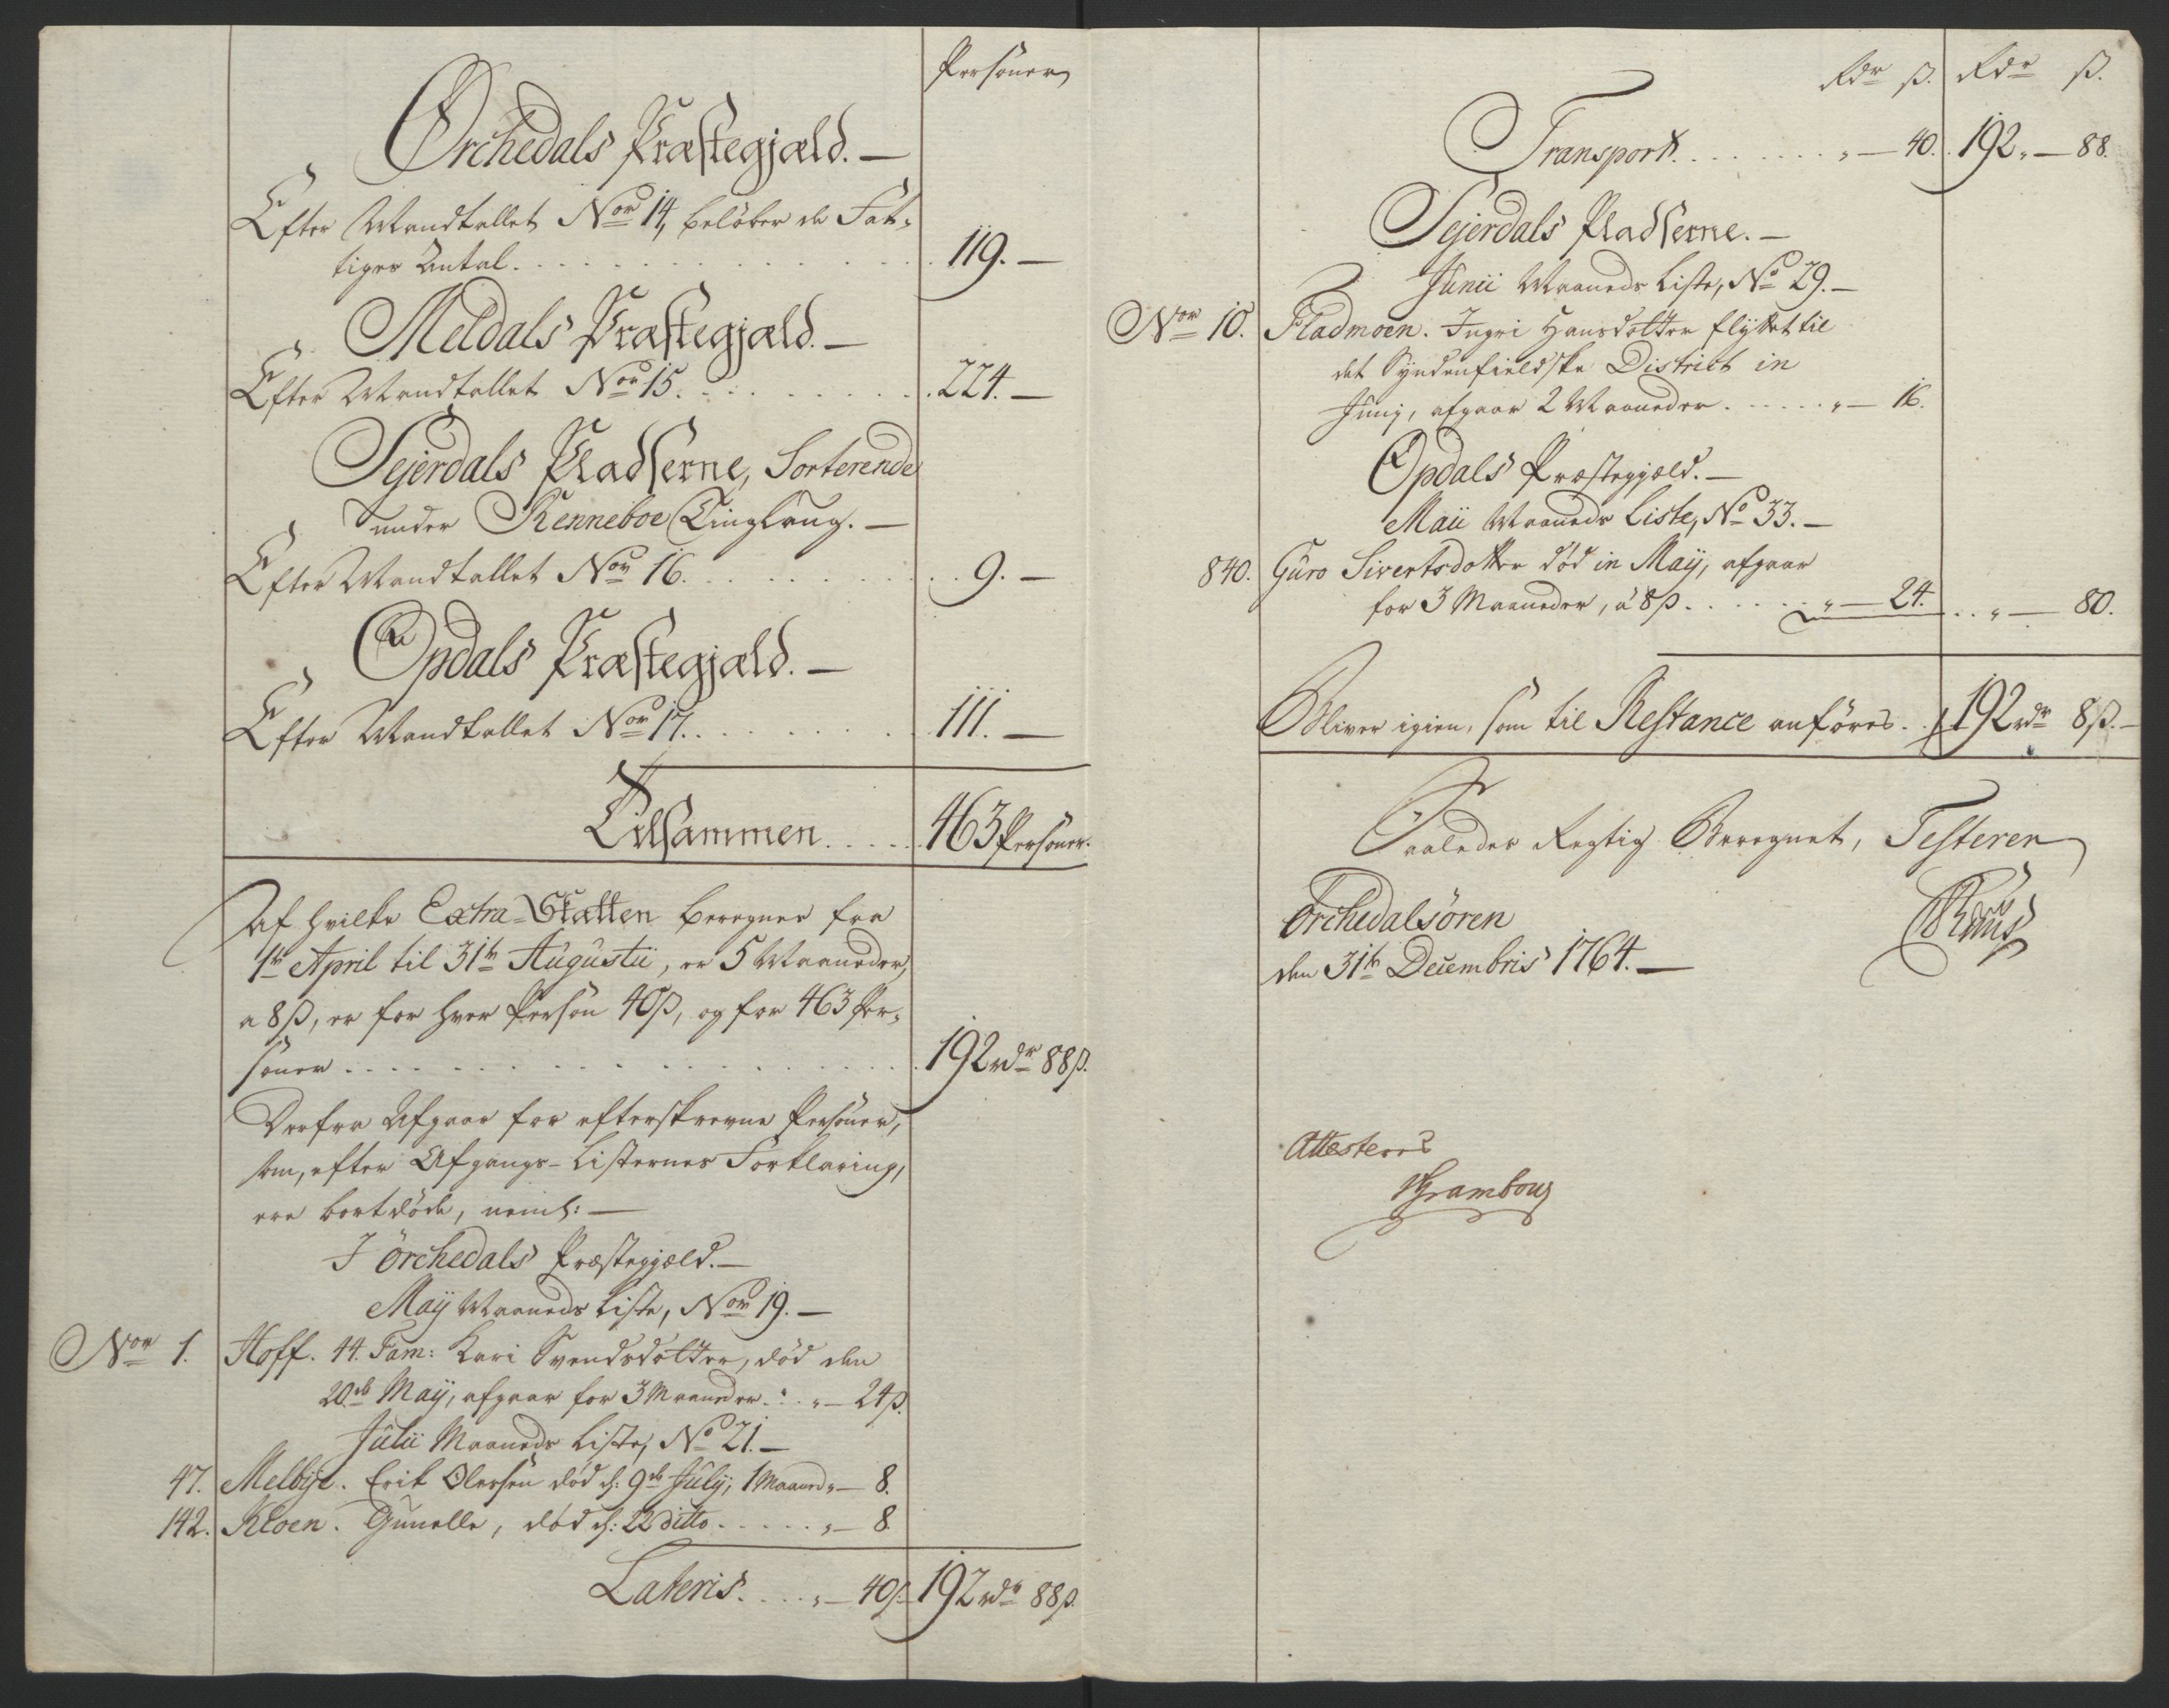 Personer
Ørchedals Præstegjæld. —
Efter Mandtallet Nor 14, beløber de Fat-
tiges Antal. . . . 119. —
Meldals Præstegjæld. —
Efter Mandtallet Nor 15. . . . 224. —
Sejerdals Pladserne, Sorterende
under Renneboe Tinglaug. —
Efter Mandtallet Nor 16. . . . 9. —
Opdals Præstegjæld. —
Efter Mandtallet Nor 17. . . . 111. —
Tilsammen. . . . 463 Personer.
Af hvilke Extra-Skatten beregnes fra
1te April til 31te Augustii, er 5 Maaneder,
a 8 ß, er for hver Person 40 ß, og for 463 Per-
soner . . . . 192 rdr 88 ß.
Derfra Afgaar for efterskrevne Personer,
som, efter Afgangs-Listernes Forklaring,
ere bortdöde, neml: —
I Örchedals Præstegjæld. —
Maÿ Maaneds Liste, Nor 19. —
Nor 1. Hoff. 44. Fam: Kari Svendsdotter, död den
20de Maÿ, afgaar for 3 Maaneder. . . „ — 24 ß.
Julii Maaneds Liste, No 21. —
47. Melbÿe. Erik Olessen död d: 9de Julÿ, 1 Maaned „ — 8.
142. Kloen. Gunelle, död d: 22 ditto . . . . „ — 8
Lateris. . . . „ — 40 ß. 192 rdr 88 ß.
Rdr ß. Rdr ß.
Transport. . . . „ — 40. 192. „ — 88.
Sejerdals Pladserne. —
Junii Maaneds Liste, No 29. —
Nor 10. Fladmoen. Ingri Hansdotter flÿttet til
det Syndenfieldske District in
Junij, afgaar 2 Maaneder. . . . „ — 16.
Opdals Præstegjæld. —
Maii Maaneds Liste, No 33. —
840. Guro Sivertsdotter död in Maÿ, afgaar
for 3 Maaneder, à 8 ß . . . . „ — 24. . . „ — 80.
Bliver igien, som til Restance anföres. . 192 rdr 8 ß. —
Saaledes Rigtig Beregnet, Testerer
Örchedalsören
den 31te Decembris 1764. —
Attesteres